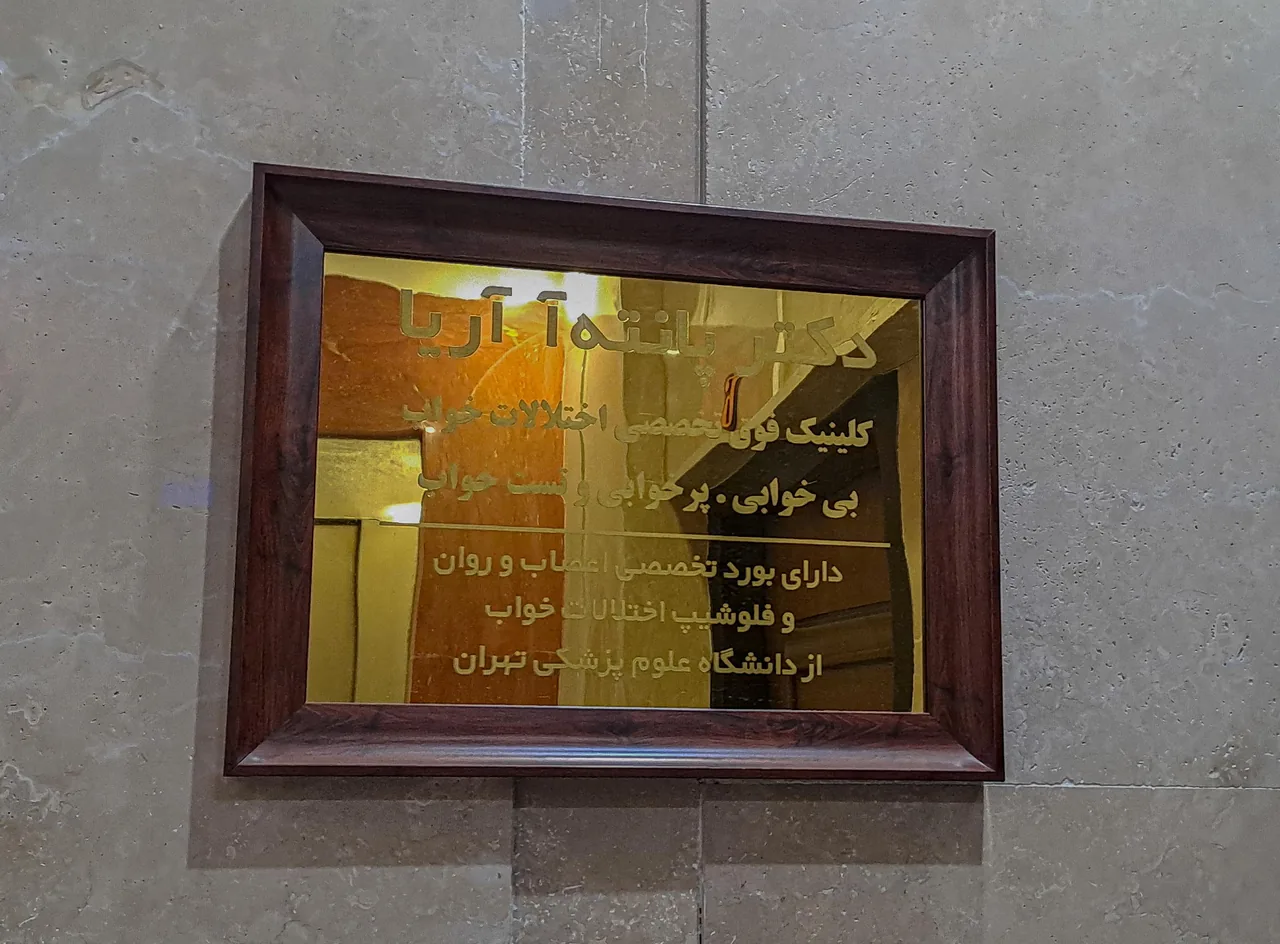 دکتر پانته‌آ آریا
کلینیک فوق تخصصی اختلالات خواب
بی خوابی . پرخوابی و تست خواب
دارای بورد تخصصی اعصاب و روان
و فلوشیپ اختلالات خواب
از دانشگاه علوم پزشکی تهران